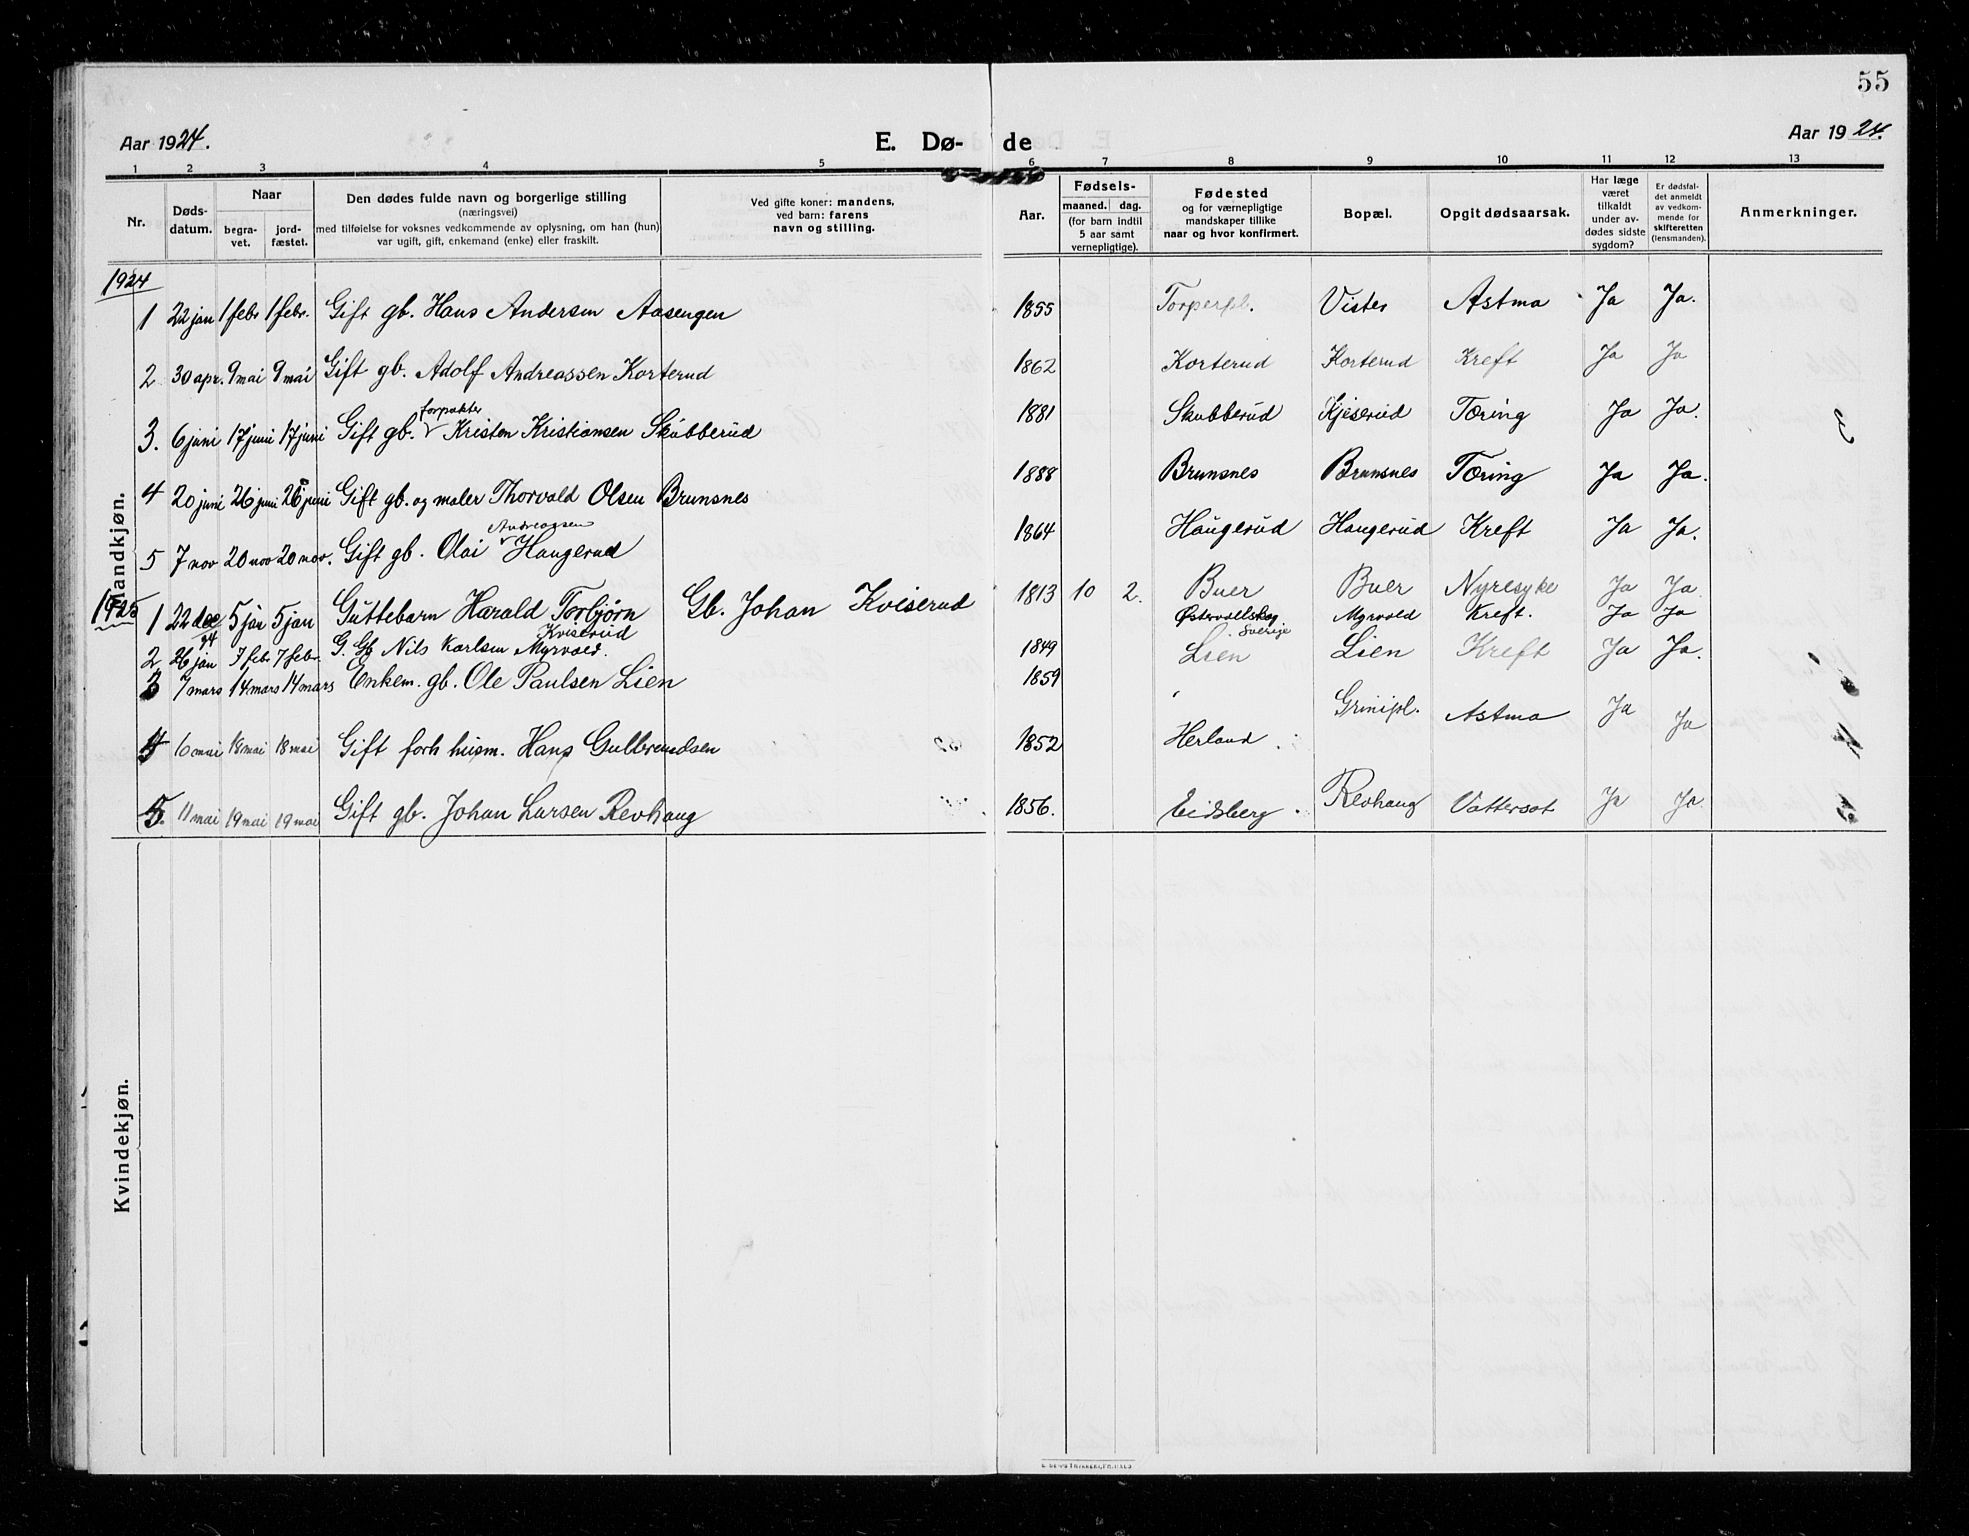 55
Aar 1924.
E. Dø-
de
Aar 1924.
1 2 3 4 5 6 7 8 9 10 11 12 13
Nr.
Døds-
datum.
Naar
begra-
vet.
jord-
fæstet.
Den dødes fulde navn og borgerlige stilling
(næringsvei)
med tilføielse for voksnes vedkommende av oplysning, om han (hun)
var ugift, gift, enkemand (enke) eller fraskilt.
Ved gifte koner: mandens,
ved barn: farens
navn og stilling.
Aar.
Fødsels-
maaned. dag.
(for barn indtil
5 aar samt
vernepligtige).
Fødested
og for værnepligtige
mandskaper tillike
naar og hvor konfirmert.
Bopæl.
Opgit dødsaarsak.
Har læge
været
tilkaldt
under av-
dødes sidste
sygdom?
Er dødsfal-
det anmeldt
av vedkom-
mende for
skifteretten
(lensmanden).
Anmerkninger.
Mandkjøn.
1924
1 22 jan 1 febr 1 febr. Gift gb. Hans Andersen Aasengen 1855 Torperpl. Vister Astma Ja Ja.
2 30 apr. 9 mai 9 mai Gift gb. Adolf Andreassen Korterud 1862 Korterud Korterud Kreft Ja Ja
forpakter
3. 6 juni 17 juni 17 juni Gift gb. Kristen Kristiansen Skubberud 1881 Skubberud Kjeserud Tæring Ja Ja.
4 20 juni 26 juni 26 juni Gift gb. og maler Thorvald Olsen Brunsnes 1888 Brunsnes Brunsnes Tæring Ja Ja.
Andreassen
5 7 nov 20 nov 20 nov. Gift gb. Olai Haugerud 1864 Haugerud Haugerud Kreft Ja Ja.
1925
1 22 dec 24 5 jan 5 jan Guttebarn Harald Torbjørn Kviserud Gb. Johan Kviserud 1813 10 2. Buer Buer Nyresyke Ja Ja
2 26 jan 7 febr 7 febr. G. Gb Nils Karlsen Myrvold. 1849 Østervallskog Sverige Myrvold Kreft. Ja Ja
3 7 mars 14 mars 14 mars Enkem. gb. Ole Paulsen Lien 1859 Lien Lien Kreft Ja Ja.
4 6 mai 18 mai 18 mai Gift forh husm. Hans Gulbrandsen 1852 Herland Grinipl. Astma Ja Ja
5. 11 mai 19 mai 19 mai Gift gb. Johan Larsen Revhaug 1856. Eidsberg. Revhaug Vattersot Ja Ja.
Kvindekjøn.